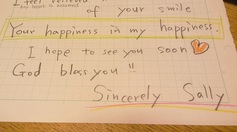 I feel relieved
of your smile
Your happiness in my happiness.
I hope to see you soon
God blas you!!
Sincerely Sally